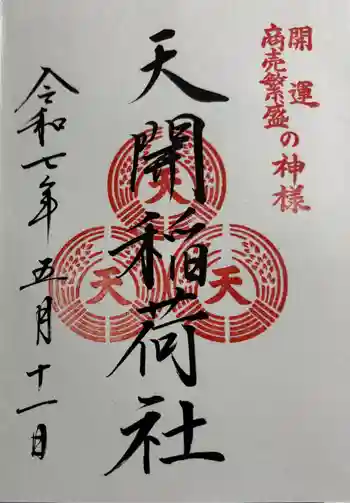 開運
商売繁盛の神様
天開稲荷社
天
天
天
令和七年五月十一日